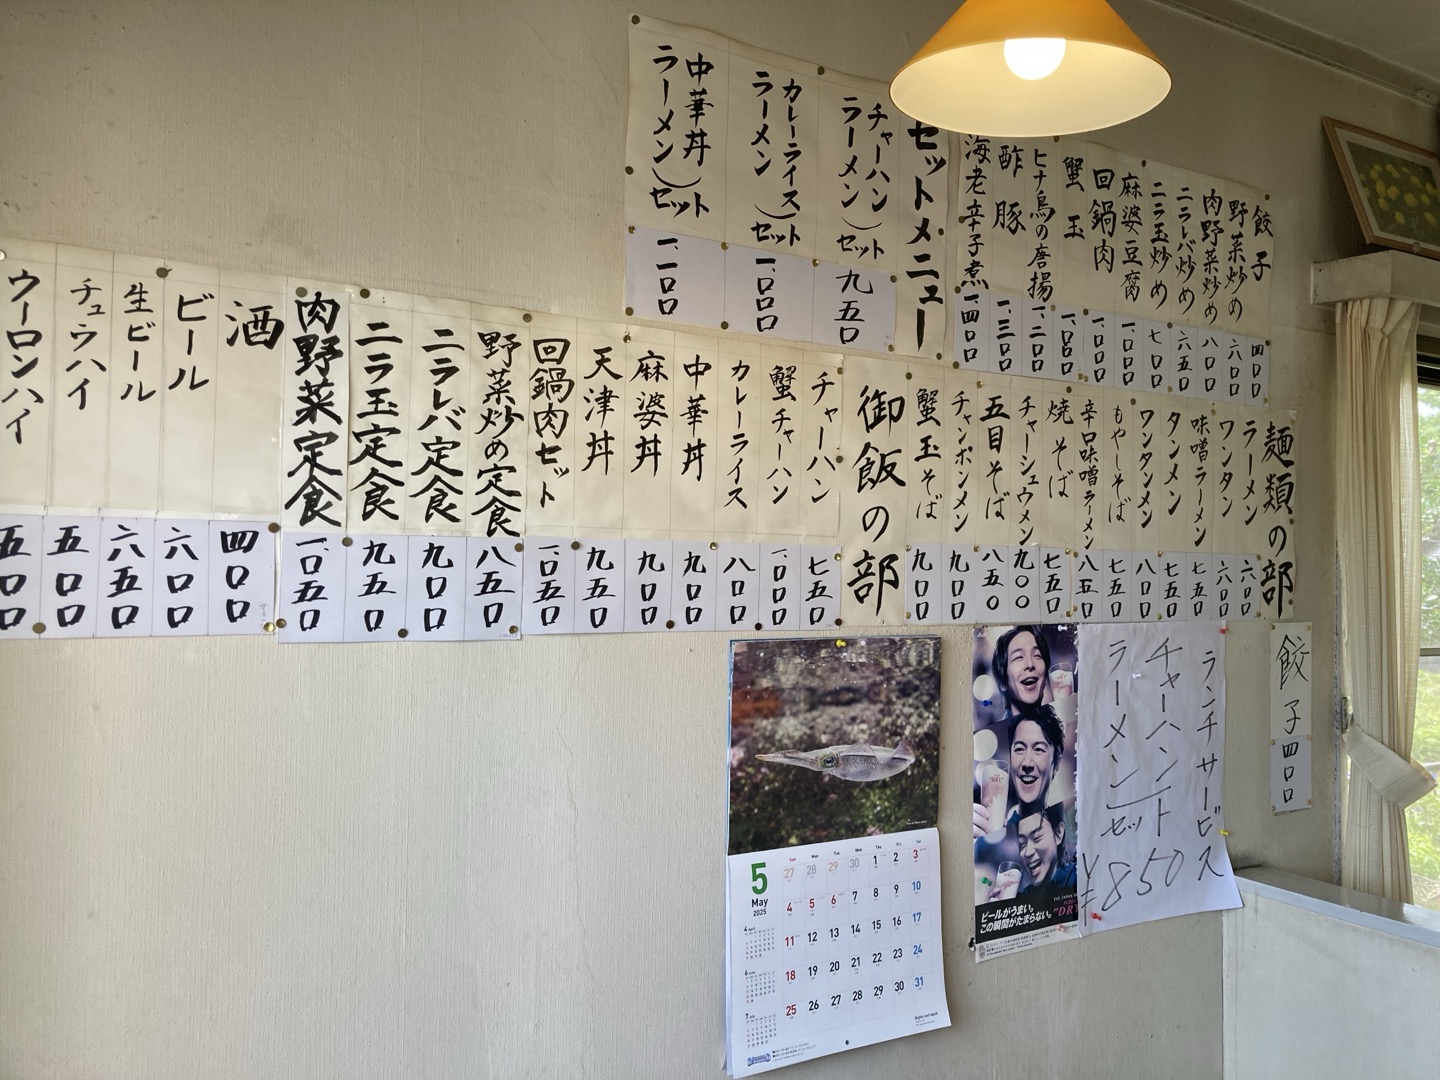 餃子 四〇〇
野菜炒め 六〇〇
肉野菜炒め 八〇〇
ニラレバ炒め 六五〇
ニラ玉炒め 七〇〇
麻婆豆腐 一、〇〇〇
回鍋肉 一、〇〇〇
蟹玉 一、〇〇〇
ヒナ鳥の唐揚 一、二〇〇
酢豚 一、三〇〇
海老辛子煮 一、四〇〇
セットメニュー
チャーハン
ラーメン
セット 九五〇
カレーライス
ラーメン
セット 一、〇〇〇
中華丼
ラーメン
セット 一、一〇〇
麺類の部
ラーメン 六〇〇
ワンタン 六〇〇
味噌ラーメン 七五〇
タンメン 七五〇
ワンタンメン 八〇〇
もやしそば 七五〇
辛口味噌ラーメン 八五〇
焼そば 七五〇
チャーシュウメン 九〇〇
五目そば 八五〇
チャンポンメン 九〇〇
蟹玉そば 九〇〇
御飯の部
チャーハン 七五〇
蟹チャーハン 一、〇〇〇
カレーライス 八〇〇
中華丼 九〇〇
麻婆丼 九〇〇
天津丼 九五〇
回鍋肉セット 一、〇五〇
野菜炒め定食 八五〇
ニラレバ定食 九〇〇
ニラ玉定食 九五〇
肉野菜定食 一、〇五〇
酒 四〇〇
ビール 六〇〇
生ビール 六五〇
チュウハイ 五〇〇
ウーロンハイ 五〇〇
餃子 四〇〇
ランチサービス
チャーハン
ラーメン
セット
¥850
ビールがうまい。
この瞬間がたまらない。
"DRY
5
May
2025
Sun Mon Tue Wed Thu Fri Sat
27 28 29 30 1 2 3
4 5 6 7 8 9 10
11 12 13 14 15 16 17
18 19 20 21 22 23 24
25 26 27 28 29 30 31